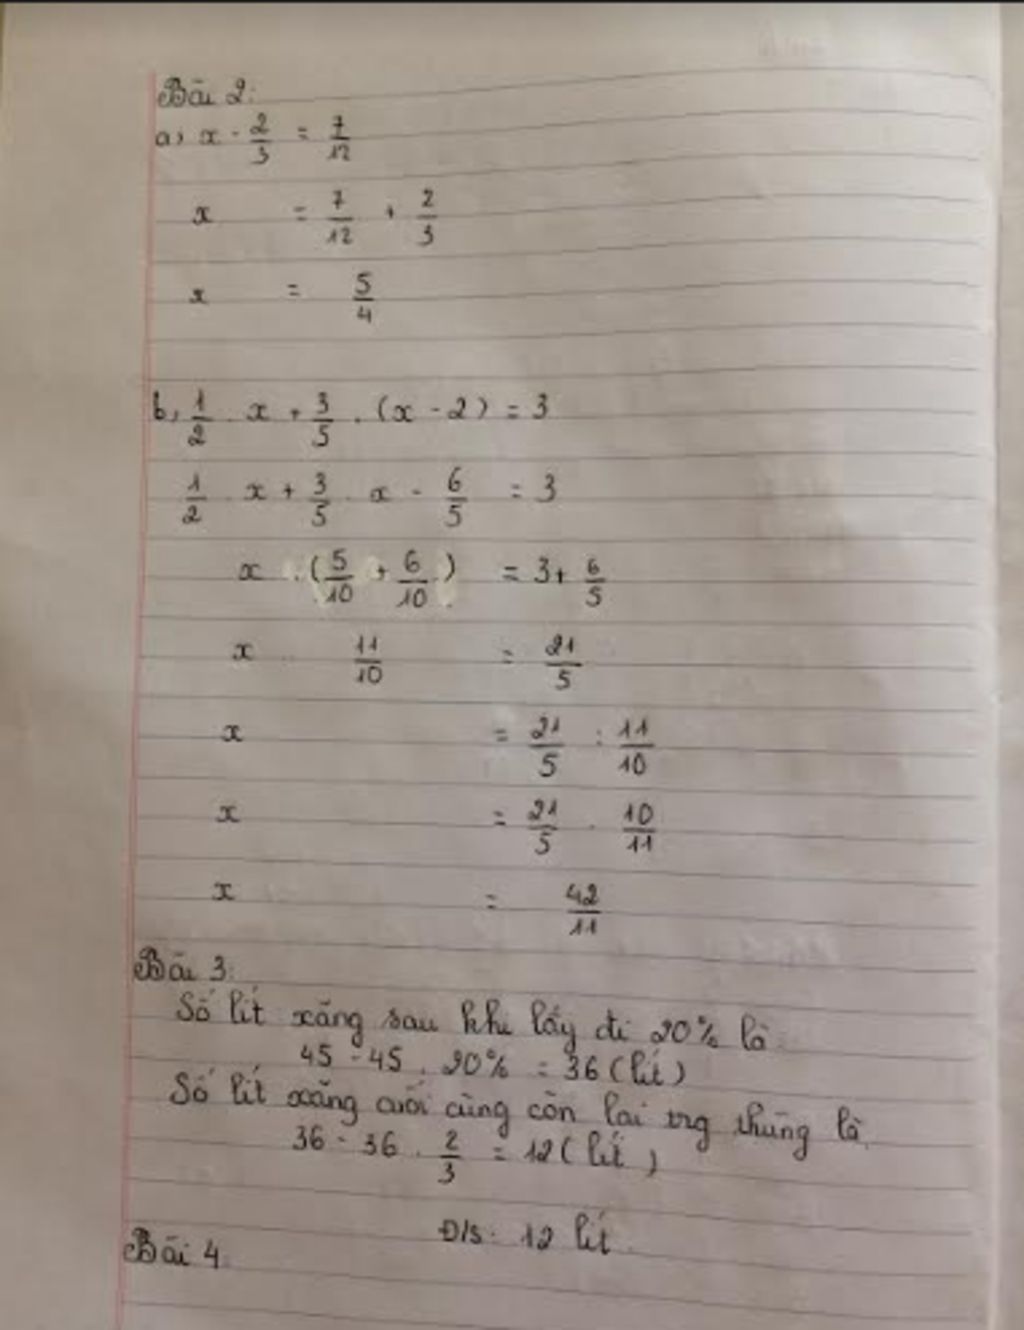 Bài 2:
a, x - 2/3 = 7/12
x = 7/12 + 2/3
x = 5/4
b, 1/2 . x + 3/5 . (x - 2) = 3
1/2 . x + 3/5 . x - 6/5 = 3
x . (5/10 + 6/10) = 3 + 6/5
x . 11/10 = 21/5
x = 21/5 : 11/10
x = 21/5 . 10/11
x = 42/11
Bài 3:
Số lít xăng sau khi lấy đi 20% là:
45 - 45 . 20% = 36 (lít)
Số lít xăng cuối cùng còn lại trg thùng là
36 - 36 . 2/3 = 12 (lít)
Đ/s: 12 lít
Bài 4: